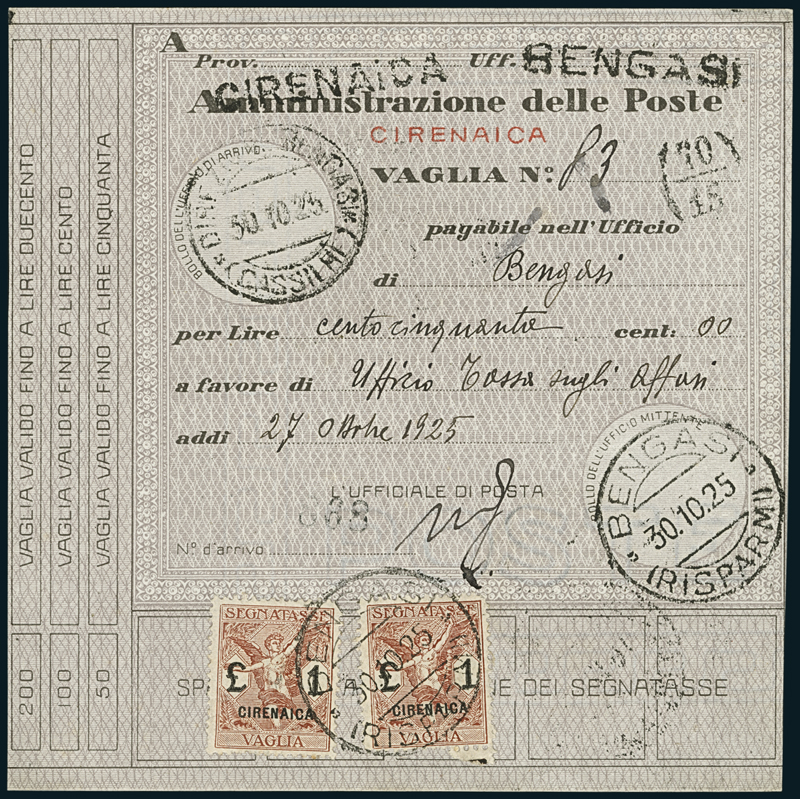 A
Prov. Uff.
CIRENAICA BENGASI
Amministrazione delle Poste
CIRENAICA
VAGLIA N.º 83
10
15
BOLLO DELL'UFFICIO DI ARRIVO
BENGASI
30.10.25
pagabile nell'Ufficio
di Bengasi
per Lire centocinquantatre cent: 00
a favore di Ufficio Tassa sugli affari
addì 27 Ottobre 1925
BOLLO DELL'UFFICIO MITTENTE
BENGASI
30.10.25
(RISPARMI)
L'UFFICIALE DI POSTA
868
Nº d'arrivo
VAGLIA VALIDO FINO A LIRE DUECENTO
VAGLIA VALIDO FINO A LIRE CENTO
VAGLIA VALIDO FINO A LIRE CINQUANTA
200
100
50
SEGNATASSE
£ 1
CIRENAICA
VAGLIA
SEGNATASSE
£ 1
CIRENAICA
VAGLIA
30.10.25
(RISPARMI)
NE DEI SEGNATASSE